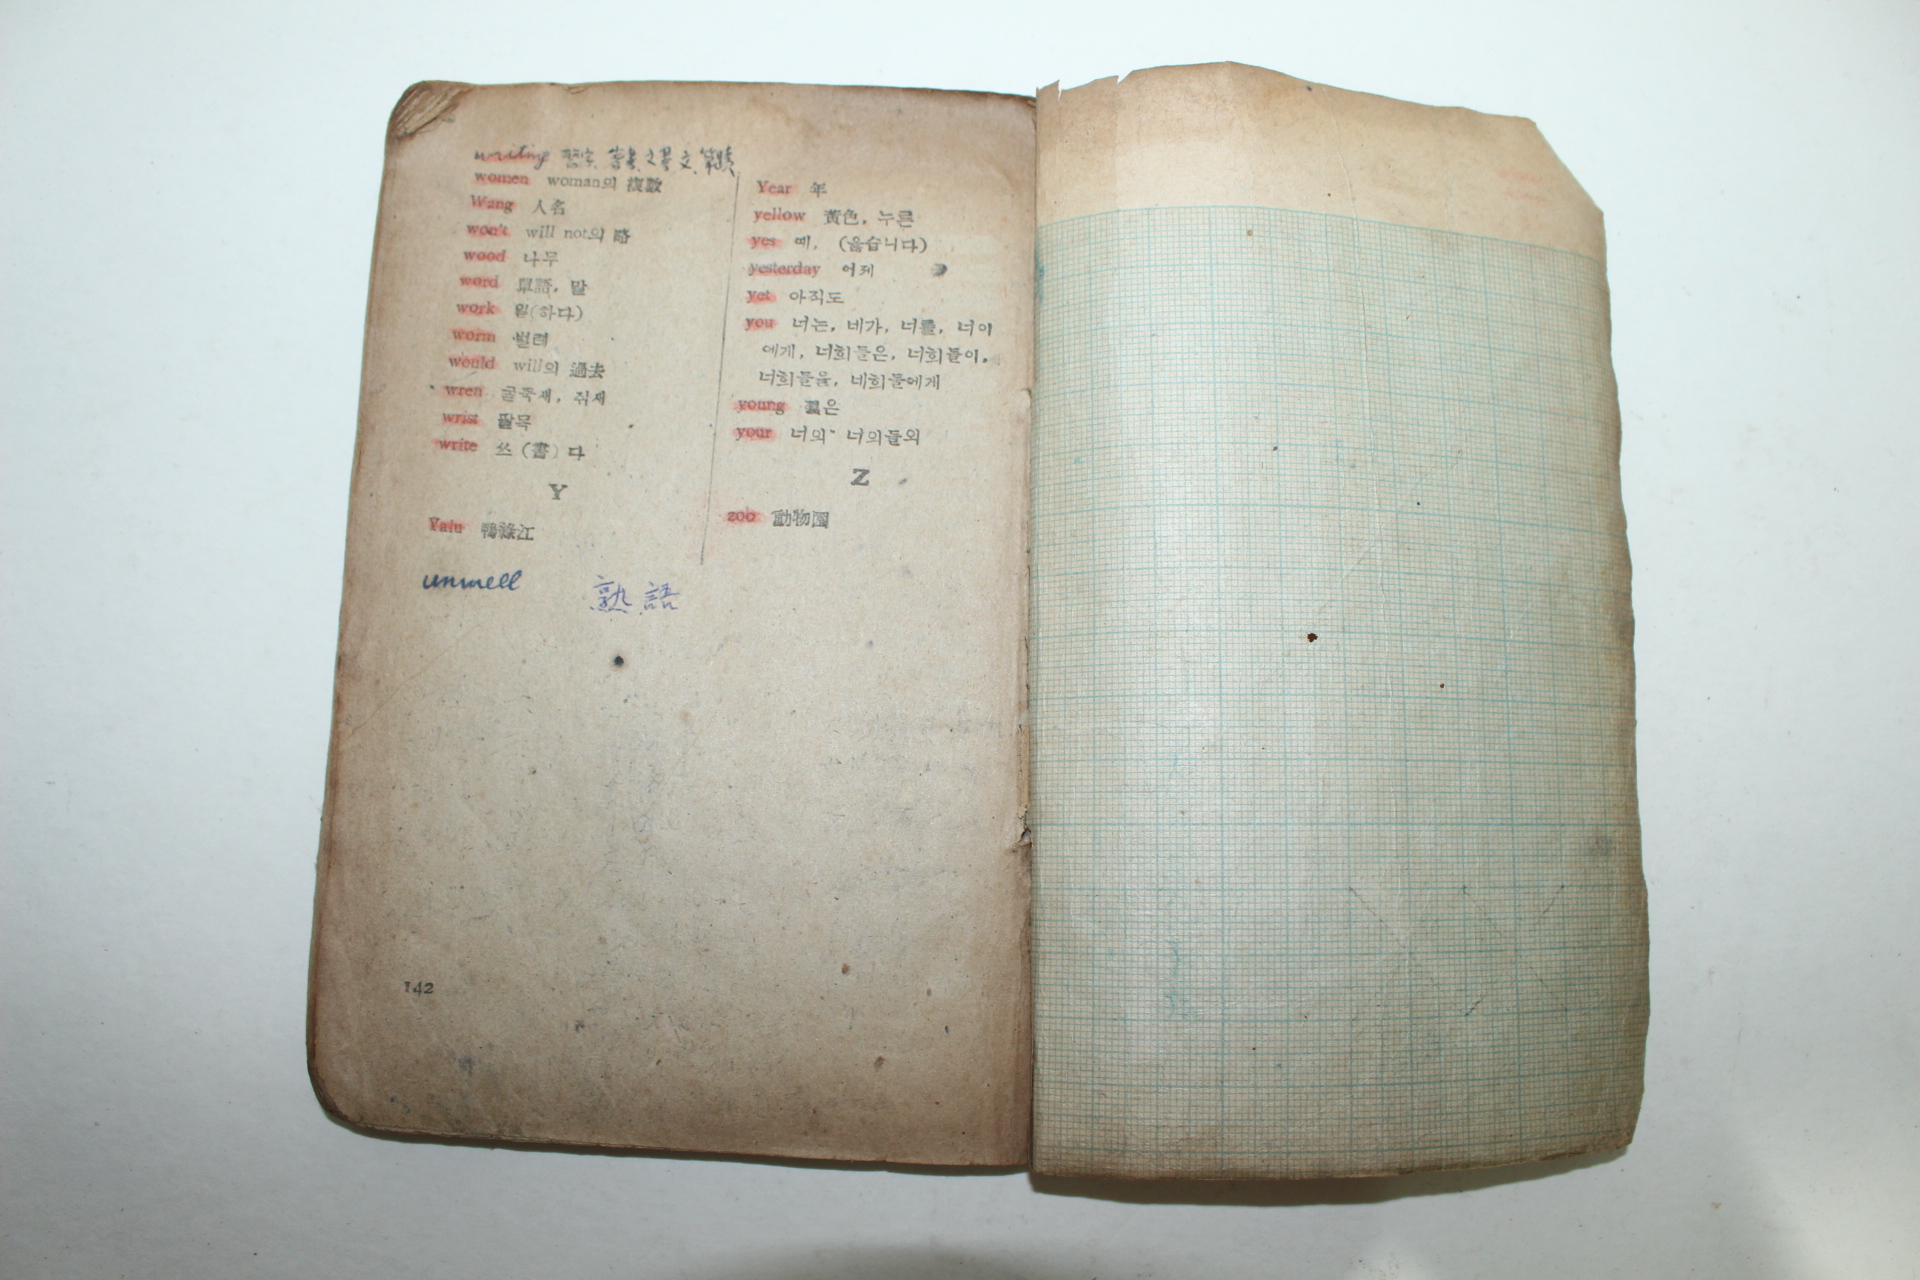 writing
women woman의 複數
Wang 人名
won't will not의 略
wood 나무
word 單語, 말
work 일(하다)
worm 벌레
would will의 過去
wren 굴죽새, 쥐새
wrist 팔목
write 쓰(書)다
Y
Yalu 鴨綠江
unwell 熟語
Year 年
yellow 黃色, 누른
yes 예, (옳습니다)
yesterday 어제
yet 아직도
you 너는, 네가, 너를, 너이
에게, 너희들은, 너희들이,
너희들을, 네희들에게
young 젊은
your 너의 너의들의
Z
zoo 動物園
142